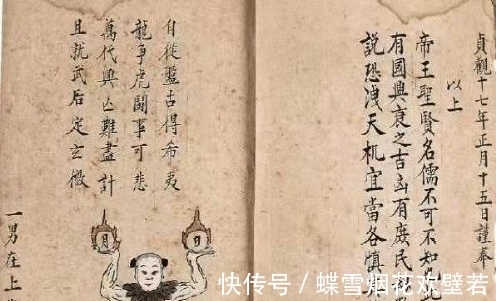 貞觀十七年正月十五日謹奉
以上
帝王聖賢名儒不可不知
有國興衰之吉凶有庶民
說恐洩天机宜當各慎
自從盤古得希夷
龍爭虎鬪事可悲
萬代興亡難盡計
且就武后定玄微
月
日
一男在上
快传号/蝶雪烟花欢壁若